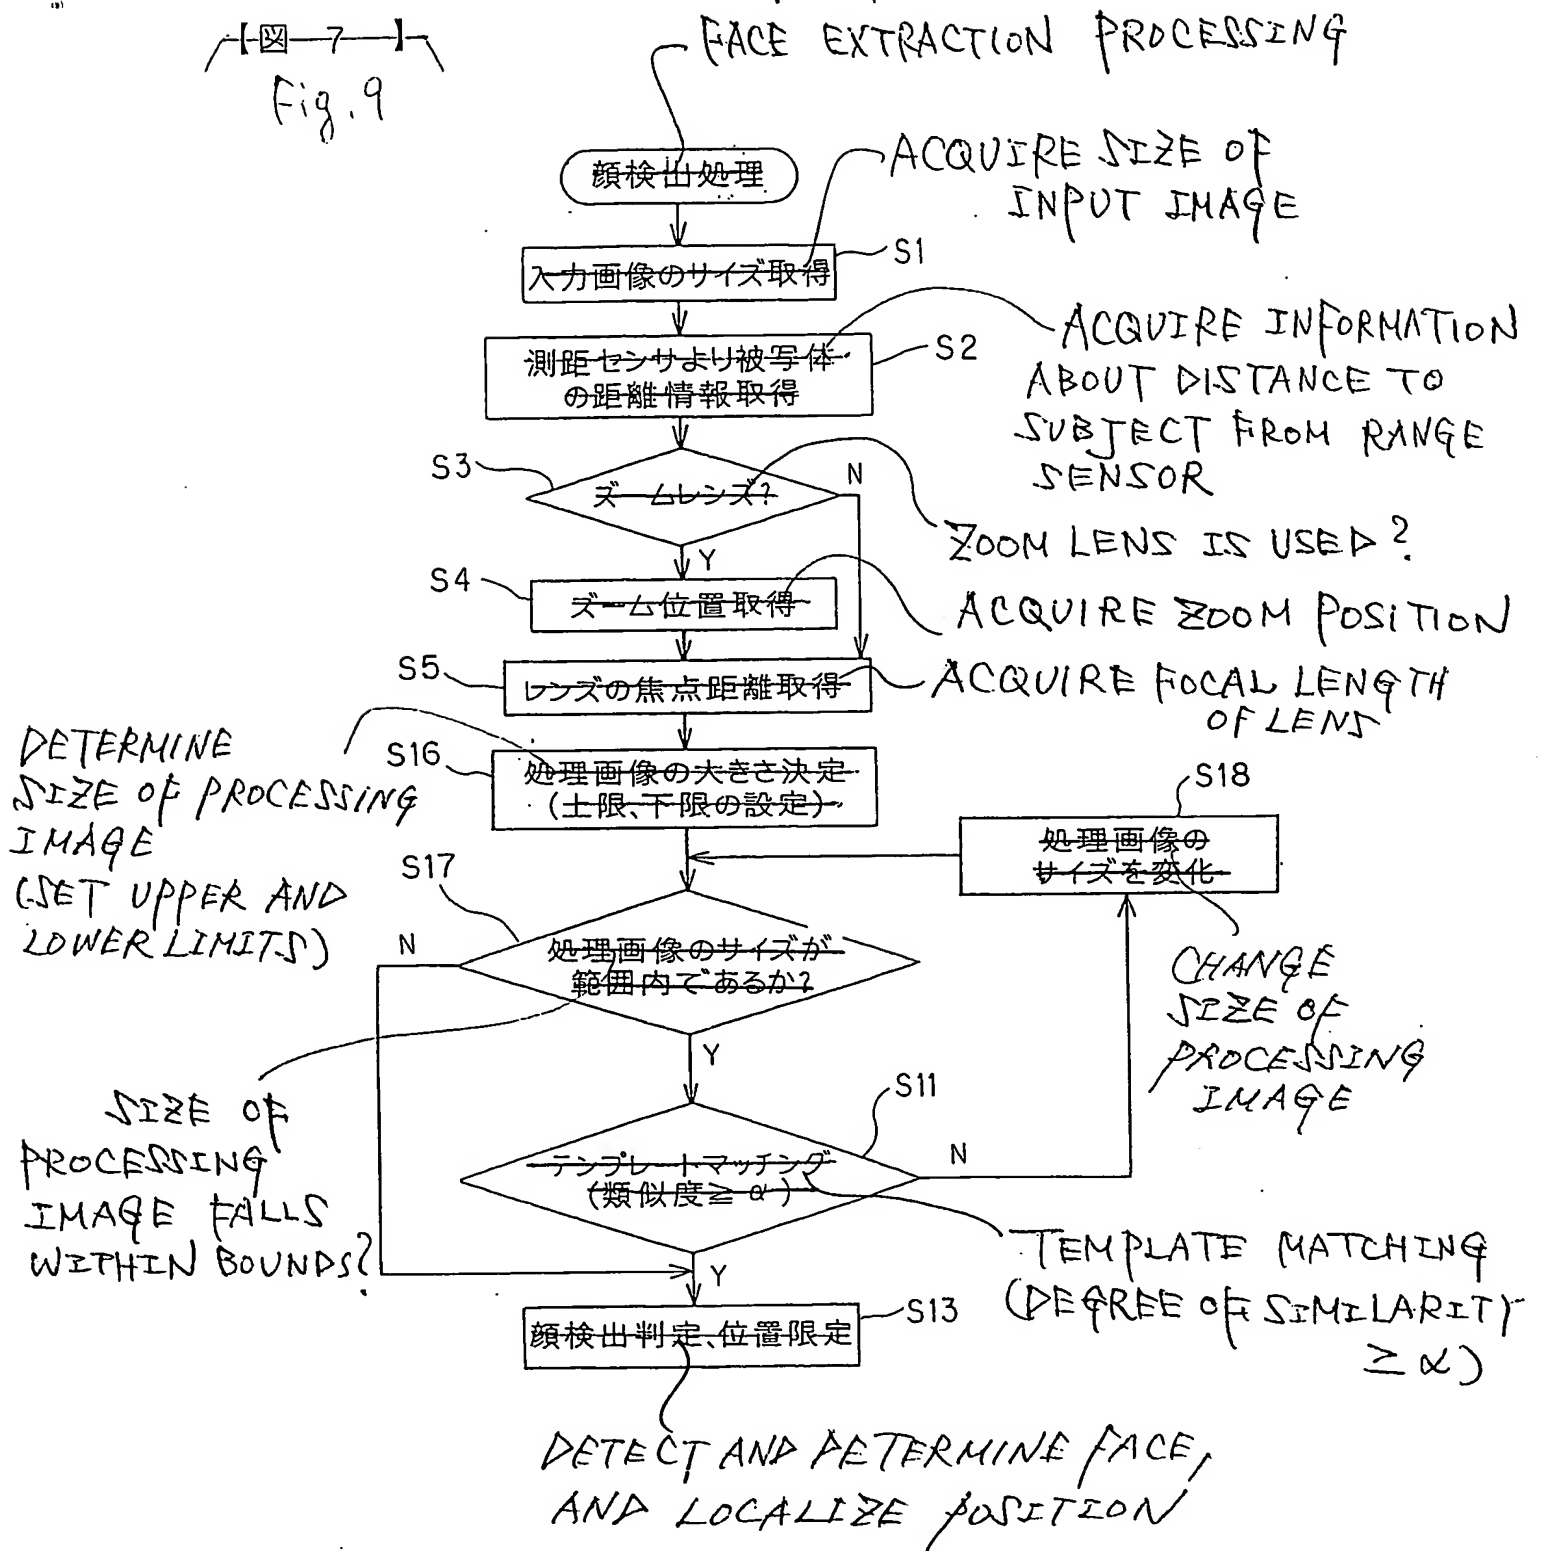 【図 7】
Fig. 9
FACE EXTRACTION PROCESSING
顔検出処理
ACQUIRE SIZE OF
INPUT IMAGE
S1
入力画像のサイズ取得
ACQUIRE INFORMATION
ABOUT DISTANCE TO
SUBJECT FROM RANGE
SENSOR
S2
測距センサより被写体
の距離情報取得
S3
ズームレンズ?
N
Y
ZOOM LENS IS USED?
S4
ズーム位置取得
ACQUIRE ZOOM POSITION
S5
レンズの焦点距離取得
ACQUIRE FOCAL LENGTH
OF LENS
DETERMINE
SIZE OF PROCESSING
IMAGE
(SET UPPER AND
LOWER LIMITS)
S16
処理画像の大きさ決定
(上限、下限の設定)
S18
処理画像の
サイズを変化
CHANGE
SIZE OF
PROCESSING
IMAGE
S17
N
処理画像のサイズが
範囲内であるか?
Y
SIZE OF
PROCESSING
IMAGE FALLS
WITHIN BOUNDS?
S11
テンプレートマッチング
(類似度≧α)
N
Y
TEMPLATE MATCHING
(DEGREE OF SIMILARITY
≥ α)
S13
顔検出判定、位置限定
DETECT AND DETERMINE FACE,
AND LOCALIZE POSITION